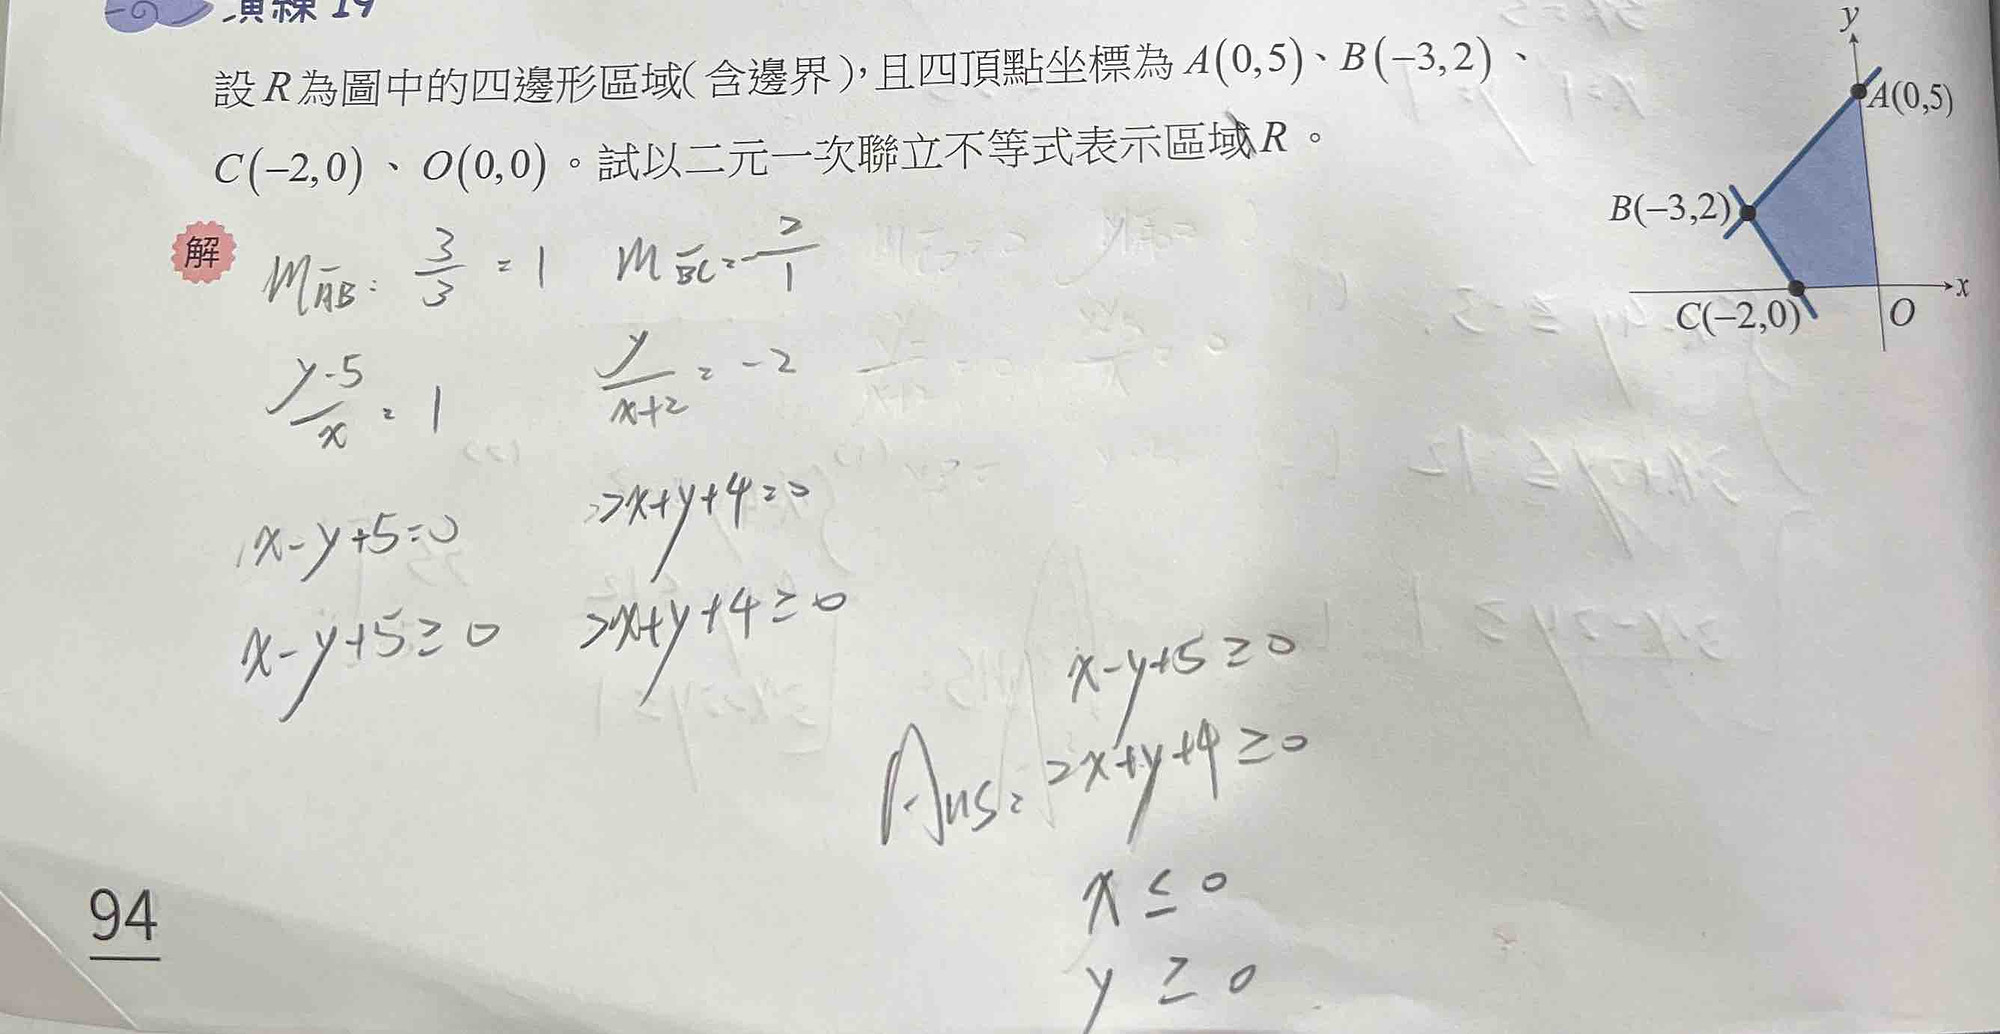 演練 19
設R為圖中的四邊形區域(含邊界),且四頂點坐標為A(0,5)、B(−3,2)、
C(−2,0)、O(0,0)。試以二元一次聯立不等式表示區域R。
y
A(0,5)
B(−3,2)
C(−2,0)
O
x
解
m AB: 3/3 = 1
m BC = -2/1
(y-5)/x = 1
y/(x+2) = -2
x-y+5=0
2x+y+4=0
x-y+5≥0
2x+y+4≥0
Ans:
x-y+5≥0
2x+y+4≥0
x≤0
y≥0
94